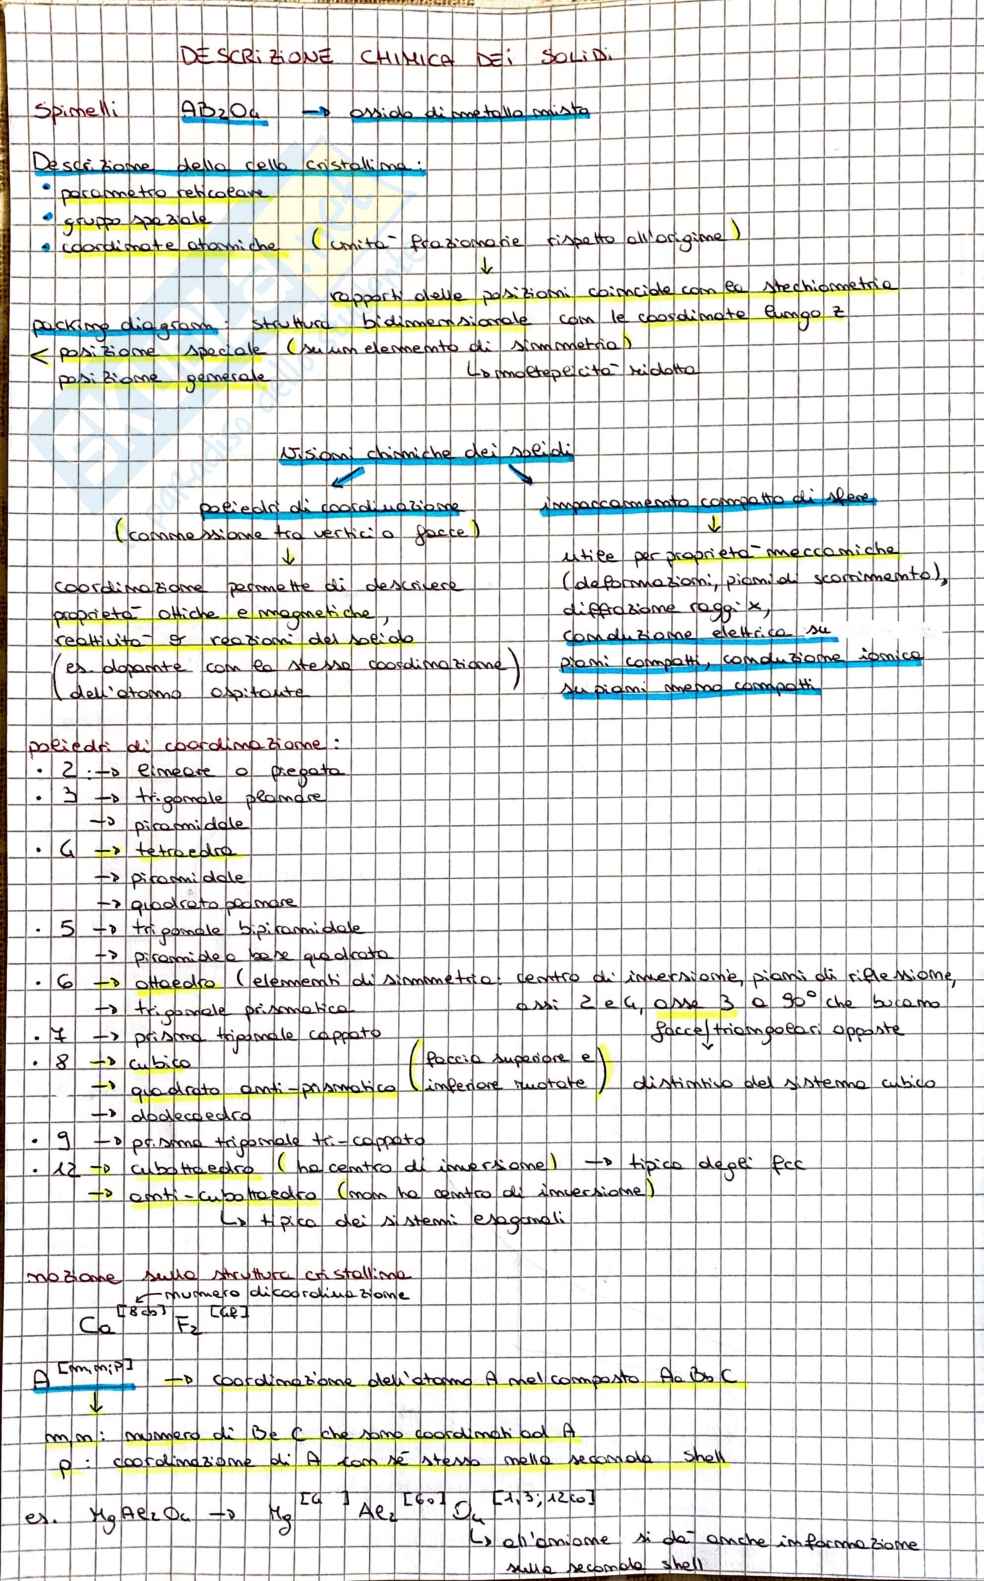 DESCRIZIONE CHIMICA DEI SOLIDI
Spinelli AB₂O₄ → ossido di metallo misto
Descrizione della cella cristallina:
• parametro reticolare
• gruppo spaziale
• coordinate atomiche (unità frazionarie rispetto all'origine)
↓
rapporti delle posizioni coincide con la stechiometria
packing diagram: struttura bidimensionale con le coordinate lungo z
< posizione speciale (su un elemento di simmetria)
posizione generale ↳ molteplicità ridotta
Visioni chimiche dei solidi
poliedri di coordinazione impaccamento compatto di sfere
(connessione tra vertici o facce)
↓
coordinazione permette di descrivere
proprietà ottiche e magnetiche,
reattività & reazioni del solido
(es. dopante con la stessa coordinazione
dell'atomo ospitante)
↓
utile per proprietà meccaniche
(deformazioni, piani di scorrimento),
diffrazione raggi x,
conduzione elettrica su
piani compatti, conduzione ionica
su piani meno compatti
poliedri di coordinazione:
• 2 → lineare o piegata
• 3 → trigonale planare
→ piramidale
• 4 → tetraedro
→ piramidale
→ quadrato planare
• 5 → trigonale bipiramidale
→ piramide a base quadrata
• 6 → ottaedro (elementi di simmetria: centro di inversione, piani di riflessione,
assi 2 e 4, asse 3 a 90° che bucano
facce triangolari opposte
↓
distintivo del sistema cubico
→ trigonale prismatica
• 7 → prisma trigonale cappato
• 8 → cubico
→ quadrato anti-prismatico (faccia superiore e
inferiore ruotate)
→ dodecaedro
• 9 → prisma trigonale tri-cappato
• 12 → cubottaedro (ha centro di inversione) → tipico degli fcc
→ anti-cubottaedro (non ha centro di inversione)
↳ tipico dei sistemi esagonali
nozione sulla struttura cristallina
← numero di coordinazione
Ca^[8cb] F₂^[4t]
A^[m,n;p] → coordinazione dell'atomo A nel composto AaBbC
↓
m,n: numero di B e C che sono coordinati ad A
p: coordinazione di A con sé stesso nella seconda shell
es. MgAl₂O₄ → Mg^[4 ] Al₂^[6o] O₄^[1,3;12co]
↳ all'anione si dà anche informazione
sulla seconda shell